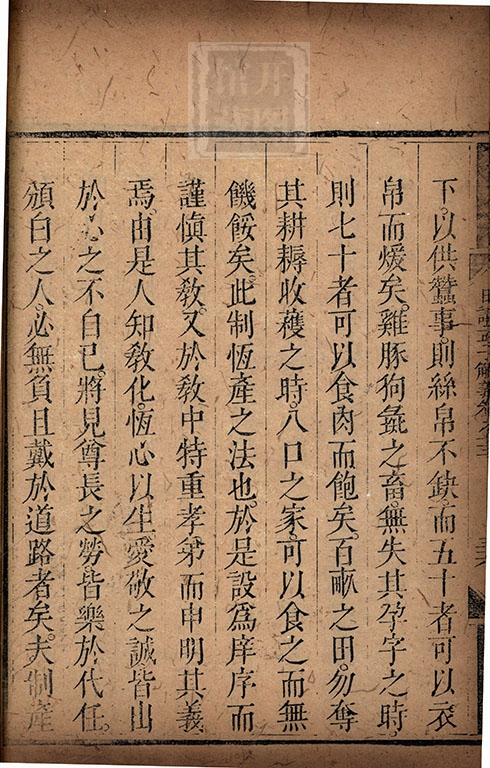 下以供蠶事則絲帛不缺而五十者可以衣
帛而煖矣雞豚狗彘之畜無失其孕字之時
則七十者可以食肉而飽矣百畝之田勿奪
其耕耨收穫之時八口之家可以食之而無
饑餒矣此制恆產之法也於是設爲庠序而
謹慎其敎又於敎中特重孝弟而申明其義
焉由是人知敎化恆心以生愛敬之誠皆出
於心之不自已將見尊長之勞皆樂於代任
頒白之人必無負且戴於道路者矣夫制產